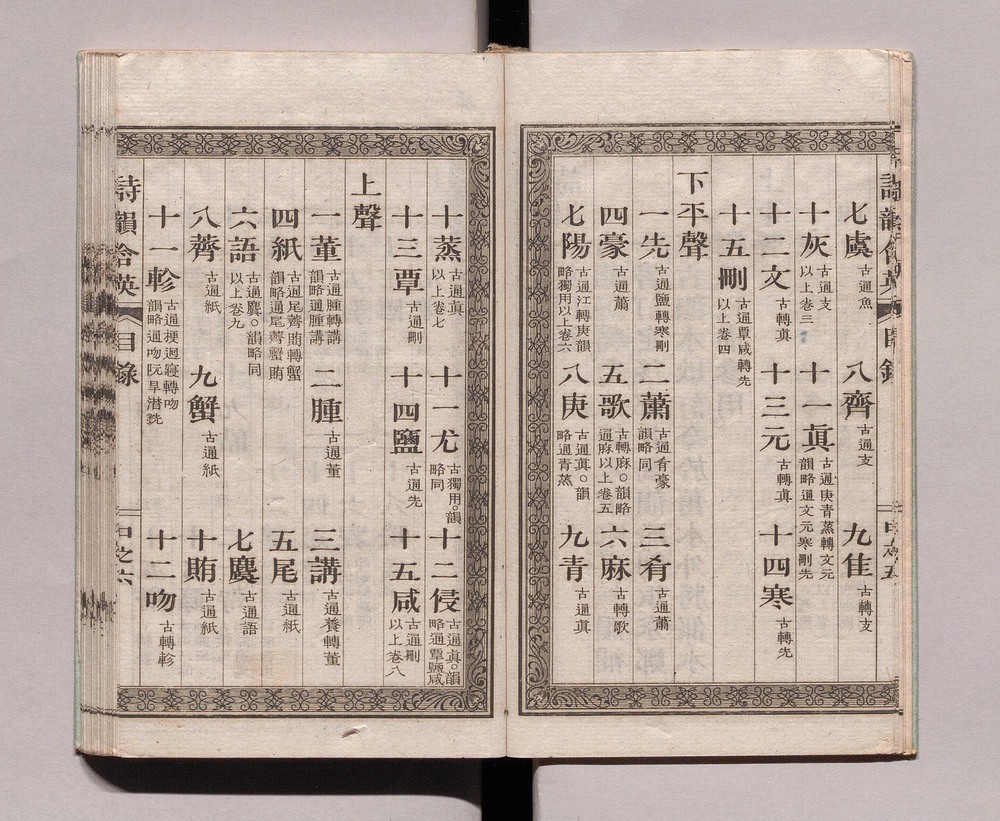 詩韻含英 目錄
七虞 古通魚 八齊 古通支 九佳 古轉支
十灰 古通支 以上卷三 十一眞 古通庚青蒸轉文元 韻略通文元寒刪先
十二文 古轉眞 十三元 古轉眞 十四寒 古轉先
十五刪 古通覃咸轉先 以上卷四
下平聲
一先 古通鹽轉寒刪 二蕭 古通肴豪 韻略同 三肴 古通蕭
四豪 古通蕭 五歌 古轉麻○韻略 通麻以上卷五 六麻 古轉歌
七陽 古通江轉庚韻 略獨用以上卷六 八庚 古通眞○韻 略通青蒸 九青 古通眞
十蒸 古通眞 以上卷七 十一尤 古獨用○韻 略同 十二侵 古通眞○韻 略通覃鹽咸
十三覃 古通刪 十四鹽 古通先 十五咸 古通刪 以上卷八
上聲
一董 古通腫轉講 韻略通腫講 二腫 古通董 三講 古通養轉董
四紙 古通尾薺賄轉蟹 韻略通尾薺蟹賄 五尾 古通紙
六語 古通麌○韻略同 以上卷九 七麌 古通語
八薺 古通紙 九蟹 古通紙 十賄 古通紙
十一軫 古通梗迥寑轉吻 韻略通吻阮旱潸銑 十二吻 古轉軫
詩韻含英 目錄 之六